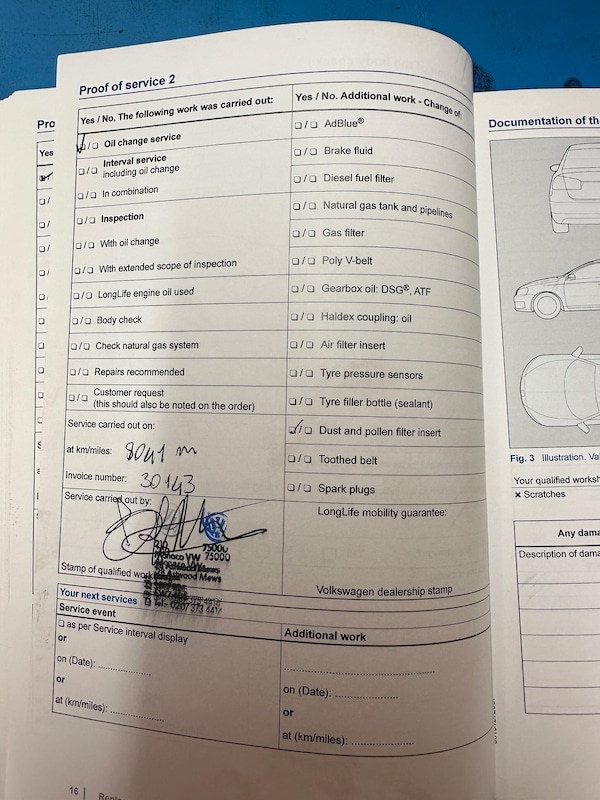 Proof of service 2
Yes / No. The following work was carried out:
❏/❏ Oil change service
❏/❏ Interval service
including oil change
❏/❏ In combination
❏/❏ Inspection
❏/❏ With oil change
❏/❏ With extended scope of inspection
❏/❏ LongLife engine oil used
❏/❏ Body check
❏/❏ Check natural gas system
❏/❏ Repairs recommended
❏/❏ Customer request
(this should also be noted on the order)
Service carried out on:
at km/miles: 8041 m
Invoice number: 30143
Service carried out by:
Monaco VW 75000
Astwood Mews
Stamp of qualified
Yes / No. Additional work - Change of:
❏/❏ AdBlue®
❏/❏ Brake fluid
❏/❏ Diesel fuel filter
❏/❏ Natural gas tank and pipelines
❏/❏ Gas filter
❏/❏ Poly V-belt
❏/❏ Gearbox oil: DSG®, ATF
❏/❏ Haldex coupling: oil
❏/❏ Air filter insert
❏/❏ Tyre pressure sensors
❏/❏ Tyre filler bottle (sealant)
❏/❏ Dust and pollen filter insert
❏/❏ Toothed belt
❏/❏ Spark plugs
LongLife mobility guarantee:
Volkswagen dealership stamp
Your next services
Service event
❏ as per Service interval display
or
on (Date): ................
or
at (km/miles): ................
Additional work
................
on (Date): ................
or
at (km/miles): ................
16
Pro
Yes
Documentation of th
Fig. 3 Illustration. Va
Your qualified worksh
× Scratches
Any dama
Description of dama